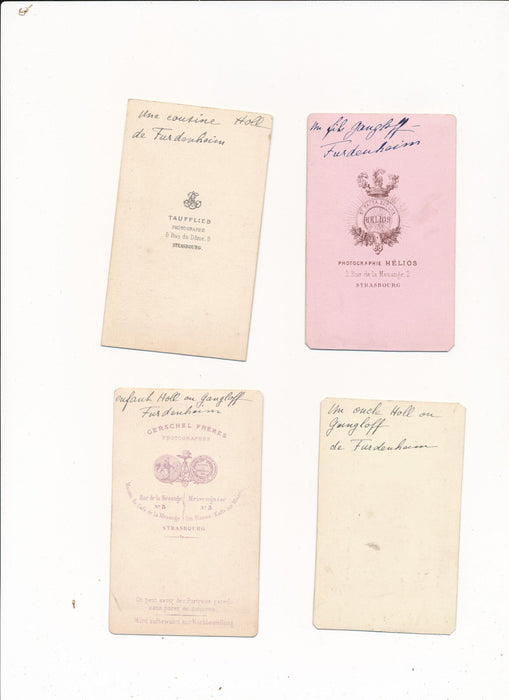 Une cousine Holl
de Furdenheim
TAUFFLIEB
PHOTOGRAPHE
5 Rue du Dôme, 5
STRASBOURG.
Un fils Gangloff
Furdenheim
HELIOS
PHOTOGRAPHIE HÉLIOS
2 Rue de la Mésange, 2
STRASBOURG
enfant Holl ou Gangloff
Furdenheim
GERSCHEL FRÈRES
PHOTOGRAPHES
Rue de la Mésange
No 5
Meisengasse
No 5
Maison du Café de la Mésange
STRASBOURG
On peut avoir des Portraits pareils
sans poser de nouveau.
Wird aufbewahrt zur Nachbestellung
Un oncle Holl ou
Gangloff
de Furdenheim